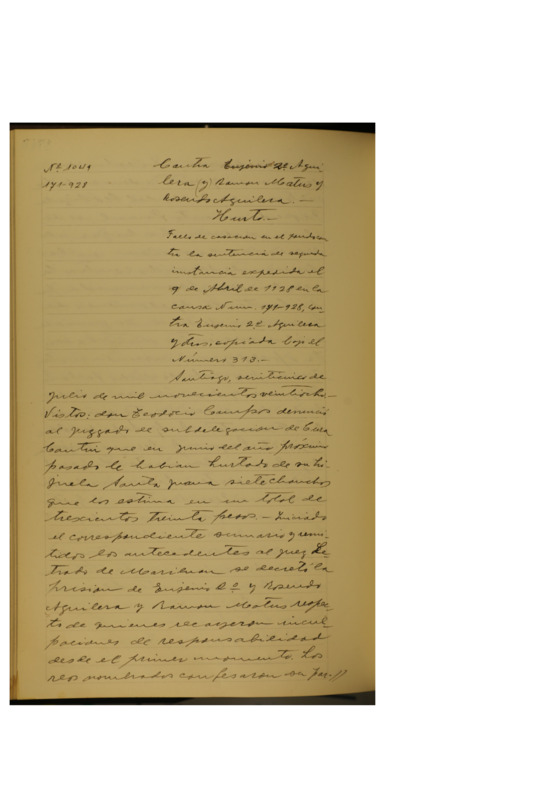 Nº 1044
141-928
Contra Eugenio 2º Agui
lera (y) Ramon Matus y
Rosendo Aguilera. —
Hurto.—
Fallo de casacion en el fondo con
tra la sentencia de segunda
instancia expedida el
9 de Abril de 1928 en la
causa Núm. 141-928, con
tra Eugenio 2º Aguilera
y otros, copiada bajo el
Número 313.—
Santiago, veintinueve de
julio de mil novecientos veintiocho-
Vistos: don Teodocio Campos denunció
al juzgado de subdelegacion de Cura
Cautin que en junio del año próximo
pasado le habian hurtado de su hi
juela Santa Juana siete chanchos
que los estima en un total de
trescientos treinta pesos. — Iniciado
el correspondiente sumario y remi
tidos los antecedentes al juez Le
trado de Mariluan se decretó la
prision de Eugenio 2º y Rosendo
Aguilera y Ramon Matus respec
to de quienes recayeron incul
paciones de responsabilidad
desde el primer momento. Los
reos nombrados confesaron su par-//